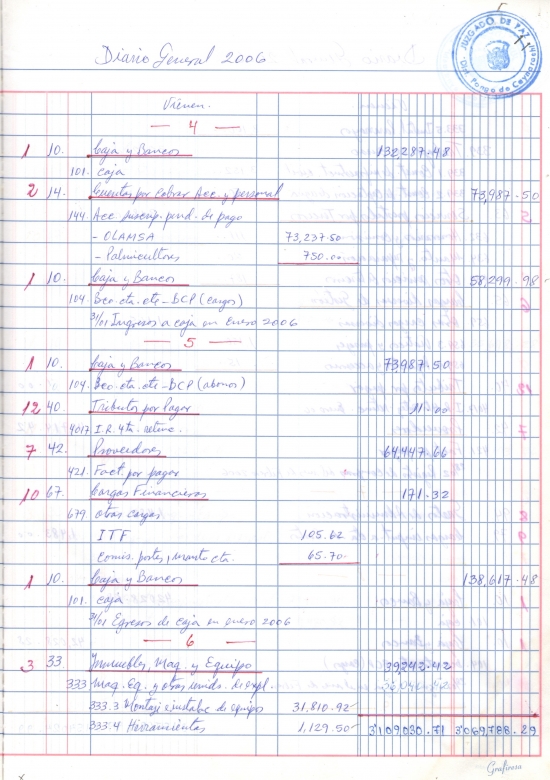 Diario General 2006
JUZGADO DE PAZ
Vienen.
— 4 —
1 10. Caja y Bancos 132,287.48
101. caja
2 14. Cuentas por Cobrar Acc. y personal 73,987.50
144 Acc. suscrip. pend. de pago
- OLAMSA 73,237.50
- Palmicultores 750.00
1 10. Caja y Bancos 58,299.98
104 Bco. cta. cte - BCP (cargos)
31/01 Ingresos a caja en Enero 2006
— 5 —
1 10. Caja y Bancos 73,987.50
104. Bco. cta. cte - BCP (abonos)
12 40. Tributos por Pagar 11.00
4017 I.R. 4ta. retenc.
7 42. Proveedores 64,447.66
421. Fact. por pagar
10 67. Cargas Financieras 171.32
679 otras cargas
ITF 105.62
Comis. portes, mante cta. 65.70
1 10. Caja y Bancos 138,617.48
101. caja
31/01 Egresos de caja en enero 2006
— 6 —
3 33. Inmuebles, Maq. y Equipo 39,242.42
333 Maq. Eq. y otras unids. de expl.
333.3 Montaje e instalac. de equipo 31,810.92
333.4 Herramientas 1,129.50 3'109,030.71 3'069,788.29
Grafirosa